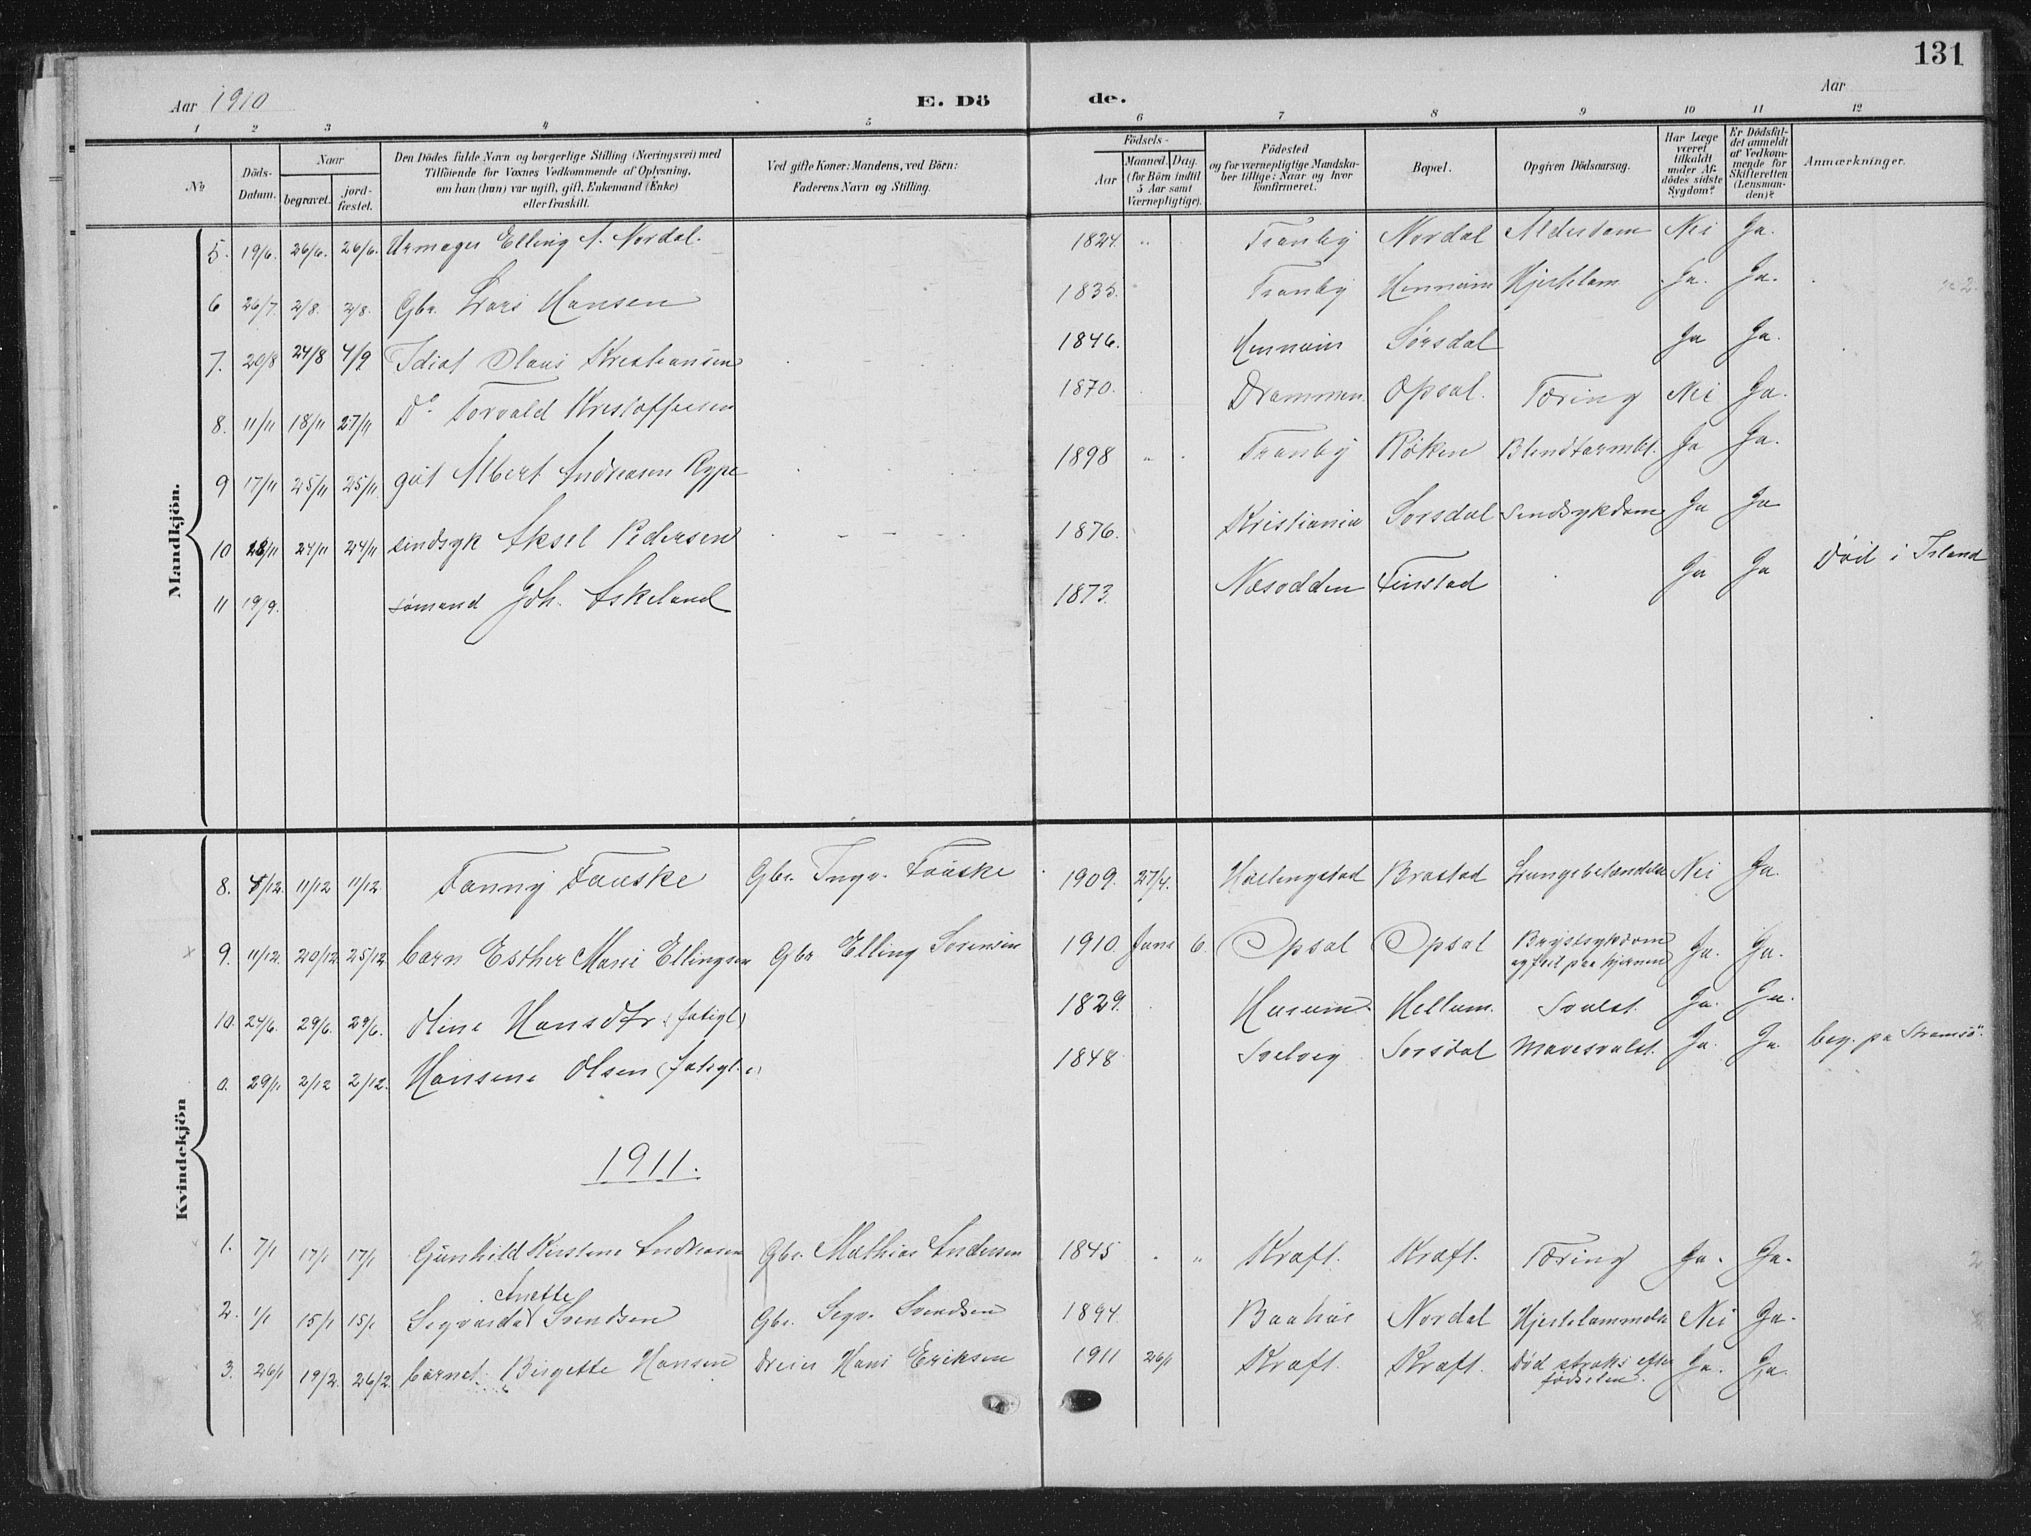 131
Aar 1910 E. Dö de. Aar
1 2 3 4 5 6 7 8 9 10 11 12
No
Döds-Datum.
Naar
begravet.
jord-fæstet.
Den Dödes fulde Navn og borgerlige Stilling (Næringsvei) med
Tilföiende for Voxnes Vedkommende af Oplysning,
om han (hun) var ugift, gift, Enkemand (Enke)
eller fraskilt.
Ved gifte Koner: Mandens, ved Börn:
Faderens Navn og Stilling.
Födsels-
Aar
Maaned. Dag.
(for Börn indtil
5 Aar samt
Værnepligtige).
Födested
og for værnepligtige Mandska-
ber tillige: Naar og hvor
konfirmeret.
Bopæl.
Opgiven Dödsaarsag.
Har Læge
været
tilkaldt
under Af-
dödes sidste
Sygdom?
Er Dödsfal-
det anmeldt
af Vedkom-
mende for
Skifteretten
(Lensman-
den)?
Anmærkninger.
Mandkjön.
5. 19/6. 26/6. 26/6. Urmager Elling A. Nordal. 1824. Tranby Nordal Alderdom Nei Ja.
6 26/7. 2/8. 2/8. Gbr. Lars Hansen 1835. Tranby Hennum Hjertelam Ja. Ja.
7. 20/8 24/8 4/9 Idiot Olaus Kristiansen 1846. Hennum Sørsdal Ja Ja.
8. 11/11 18/11 27/11 Do Torvald Kristoffersen 1870. Drammen Opsal. Tæring Nei Ja.
9 17/11 25/11 25/11 gut Albert Andreasen Rype 1898 Tranby Røken Blindtarmbt. Ja Ja.
10 24/11 24/11 sindsyk Aksel Pedersen 1876. Kristiania Sorsdal Sindsykdom Ja Ja
11 19/9. sømand Joh. Askeland 1873. Næsodden Finstad Ja Ja Död i Island
Kvindekjön
8. /12. 11/12 11/12. Fanny Fauske Gbr. Ingv. Fauske 1909. 27/4. Hallingstad Brastad Lungebetændelse Nei Ja.
9. 11/12. 20/12 25/12 barn Esther Marie Ellingsen Gbr Elling Sorensen 1910 Juni 6. Opsal Opsal Brystsykdom Ja. Ja.
og feil paa hjernen
10. 24/6. 29/6. 29/6. Oline Hansdtr (fatigl) 1829. Husum Hellum. Svulst. Ja. Ja.
0. 29/11 2/12 2/12. Hansine Olsen (fatigl.) 1848 Svelvig Sorsdal Mavesvulst. Ja. Ja beg. pa Strømsö.
1911.
1. 7/1 17/1 17/1 Gunhild Kirstine Andreasen Gbr. Mathias Andersen 1845 Kraft. Kraft. Tæring Ja. Ja.
Anette
2. 1/1 15/1 15/1 Sigvarda Svendsen Gbr. Sigv. Svendsen 1894. Nordal Hjertelammelse Nei Ja.
3. 26/1 19/2. 26/2. barnet Birgitte Hansen Dreier Hans Eriksen 1911 26/1 Kraft. Kraft. Död straks efter Ja. Ja.
födselen.